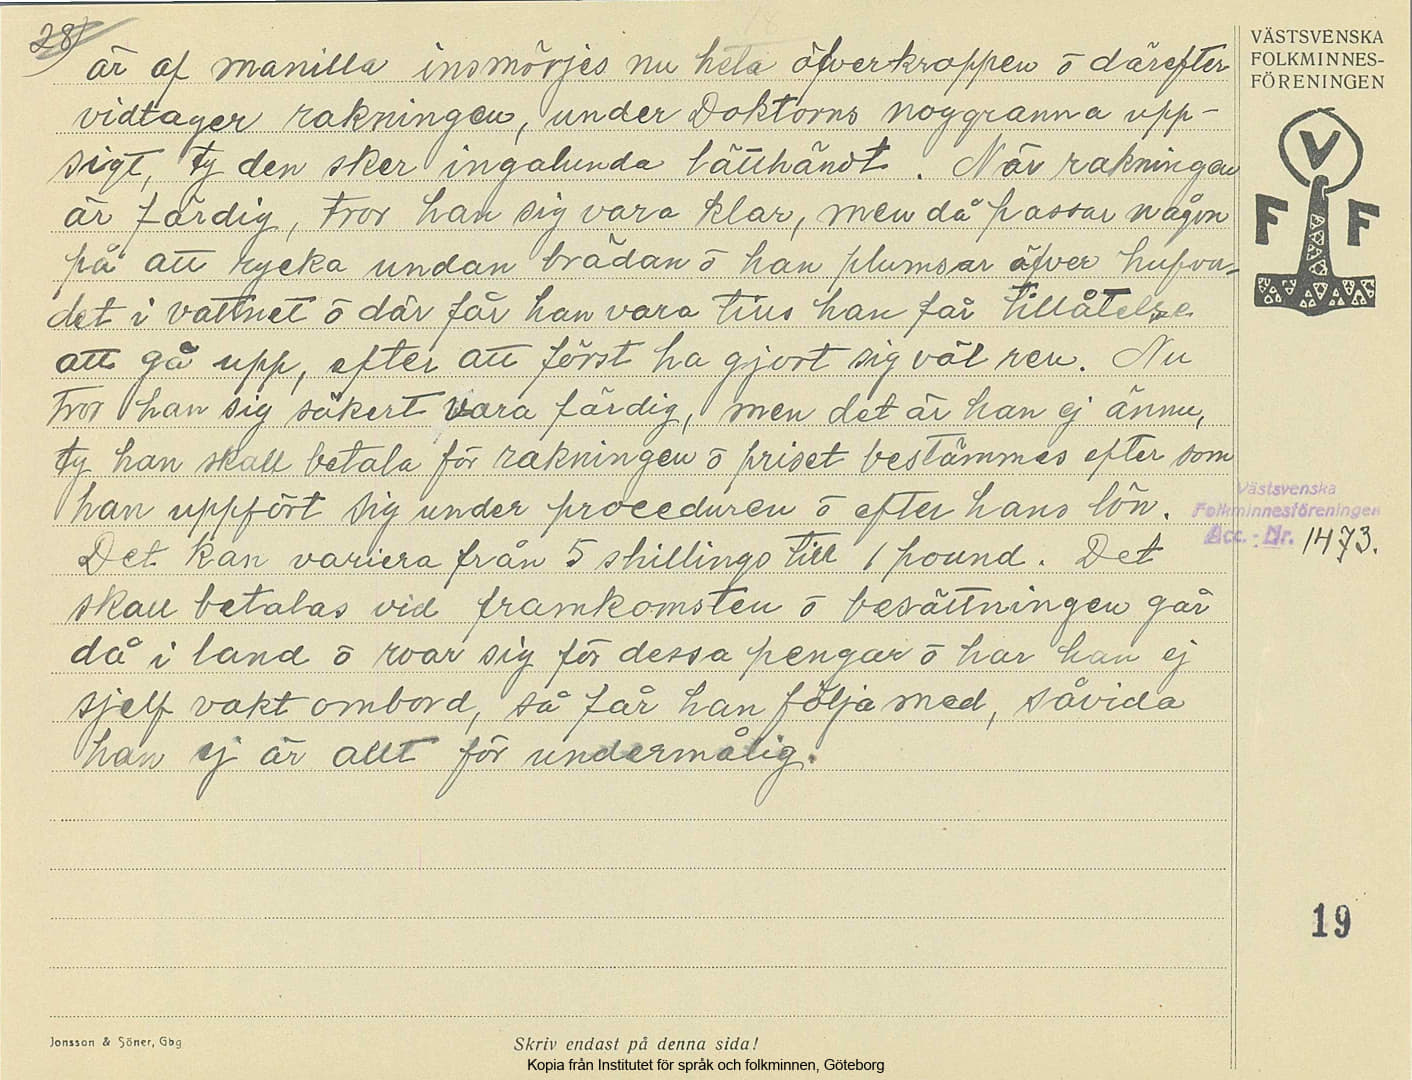 28)
är af manilla insmörjes nu hela öfverkroppen ō därefter
vidtager rakningen, under Doktorns noggranna upp-
sigt, ty den sker ingalunda lätthändt. När rakningen
är färdig, tror han sig vara klar, men då passar någon
på att rycka undan brädan ō han plumsar öfver hufvu-
det i vattnet ō där får han vara tills han får tillåtelse
att gå upp, efter att först ha gjort sig väl ren. Nu
tror han sig säkert vara färdig, men det är han ej ännu,
ty han skall betala för rakningen ō priset bestämmes efter som
han uppfört sig under proceduren ō efter hans lön.
Det kan variera från 5 shillings till 1 pound. Det
skall betalas vid framkomsten ō besättningen går
då i land ō roar sig för dessa pengar ō har han ej
sjelf vakt ombord, så får han följa med, såvida
han ej är allt för undermålig.
VÄSTSVENSKA
FOLKMINNES-
FÖRENINGEN
V
F F
Västsvenska
Folkminnesföreningen
Acc. - Nr. 1473.
19
Jonsson & Söner, Gbg
Skriv endast på denna sida!
Kopia från Institutet för språk och folkminnen, Göteborg